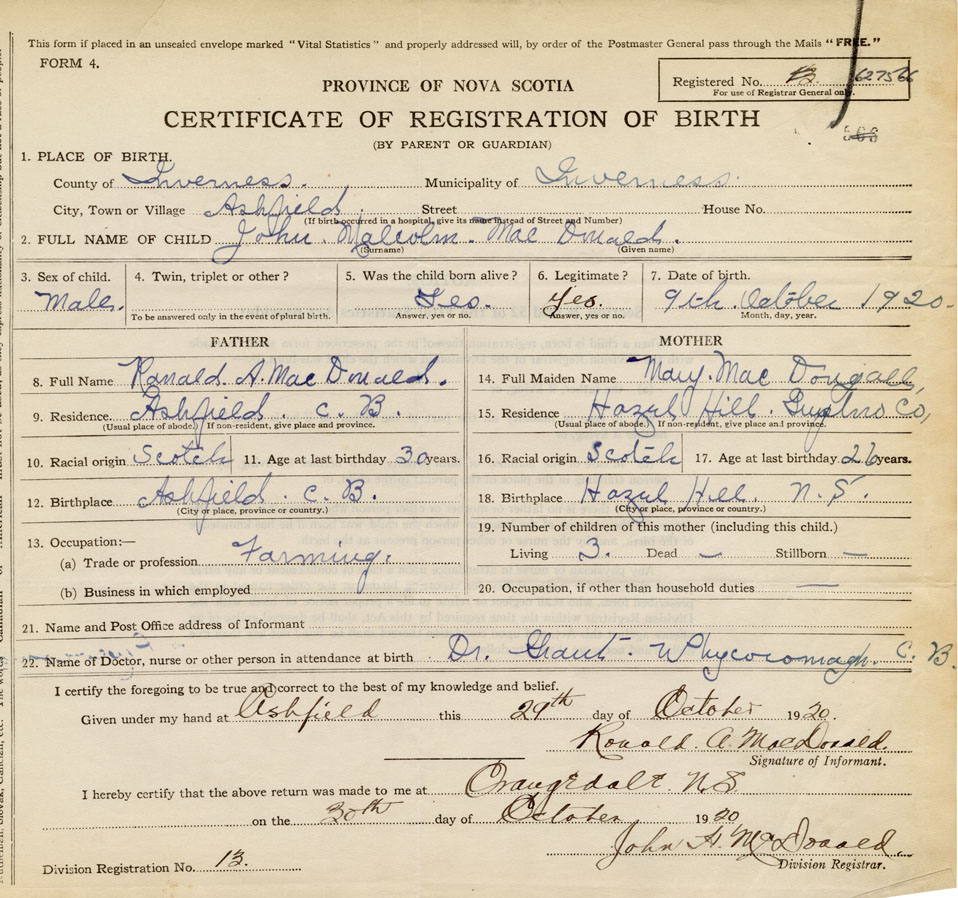 This form if placed in an unsealed envelope marked "Vital Statistics" and properly addressed will, by order of the Postmaster General pass through the Mails "FREE."
FORM 4.
Registered No. 13. 627566
For use of Registrar General only.
PROVINCE OF NOVA SCOTIA
CERTIFICATE OF REGISTRATION OF BIRTH
(BY PARENT OR GUARDIAN)
1. PLACE OF BIRTH.
County of Inverness. Municipality of Inverness.
City, Town or Village Ashfield Street House No.
(If birth occurred in a hospital, give its name instead of Street and Number)
2. FULL NAME OF CHILD John Malcolm. Mac Donald.
(Surname) (Given name)
3. Sex of child. 4. Twin, triplet or other? 5. Was the child born alive? 6. Legitimate? 7. Date of birth.
Male. Yes. Yes. 9th October 1920.
To be answered only in the event of plural birth. Answer, yes or no. Answer, yes or no. Month, day, year.
FATHER MOTHER
8. Full Name Ranald. A. Mac Donald. 14. Full Maiden Name Mary. Mac Dougall,
9. Residence. Ashfield. C. B. 15. Residence Hazel Hill. Co,
(Usual place of abode.) If non-resident, give place and province. (Usual place of abode.) If non-resident, give place and province.
10. Racial origin Scotch 11. Age at last birthday 30 years. 16. Racial origin Scotch 17. Age at last birthday 26 years.
12. Birthplace Ashfield. C. B. 18. Birthplace Hazel Hill. N. S.
(City or place, province or country.) (City or place, province or country.)
13. Occupation:— 19. Number of children of this mother (including this child.)
(a) Trade or profession Farming. Living 3. Dead — Stillborn —
(b) Business in which employed 20. Occupation, if other than household duties —
21. Name and Post Office address of Informant
22. Name of Doctor, nurse or other person in attendance at birth Dr. Grant. Whycocomagh. C. B.
I certify the foregoing to be true and correct to the best of my knowledge and belief.
Given under my hand at Ashfield this 29th day of October 1920.
Ronald. A. MacDonald.
Signature of Informant.
I hereby certify that the above return was made to me at Orangedale N S
on the 30th day of October 1920
John A. McDonald
Division Registration No. 13. Division Registrar.